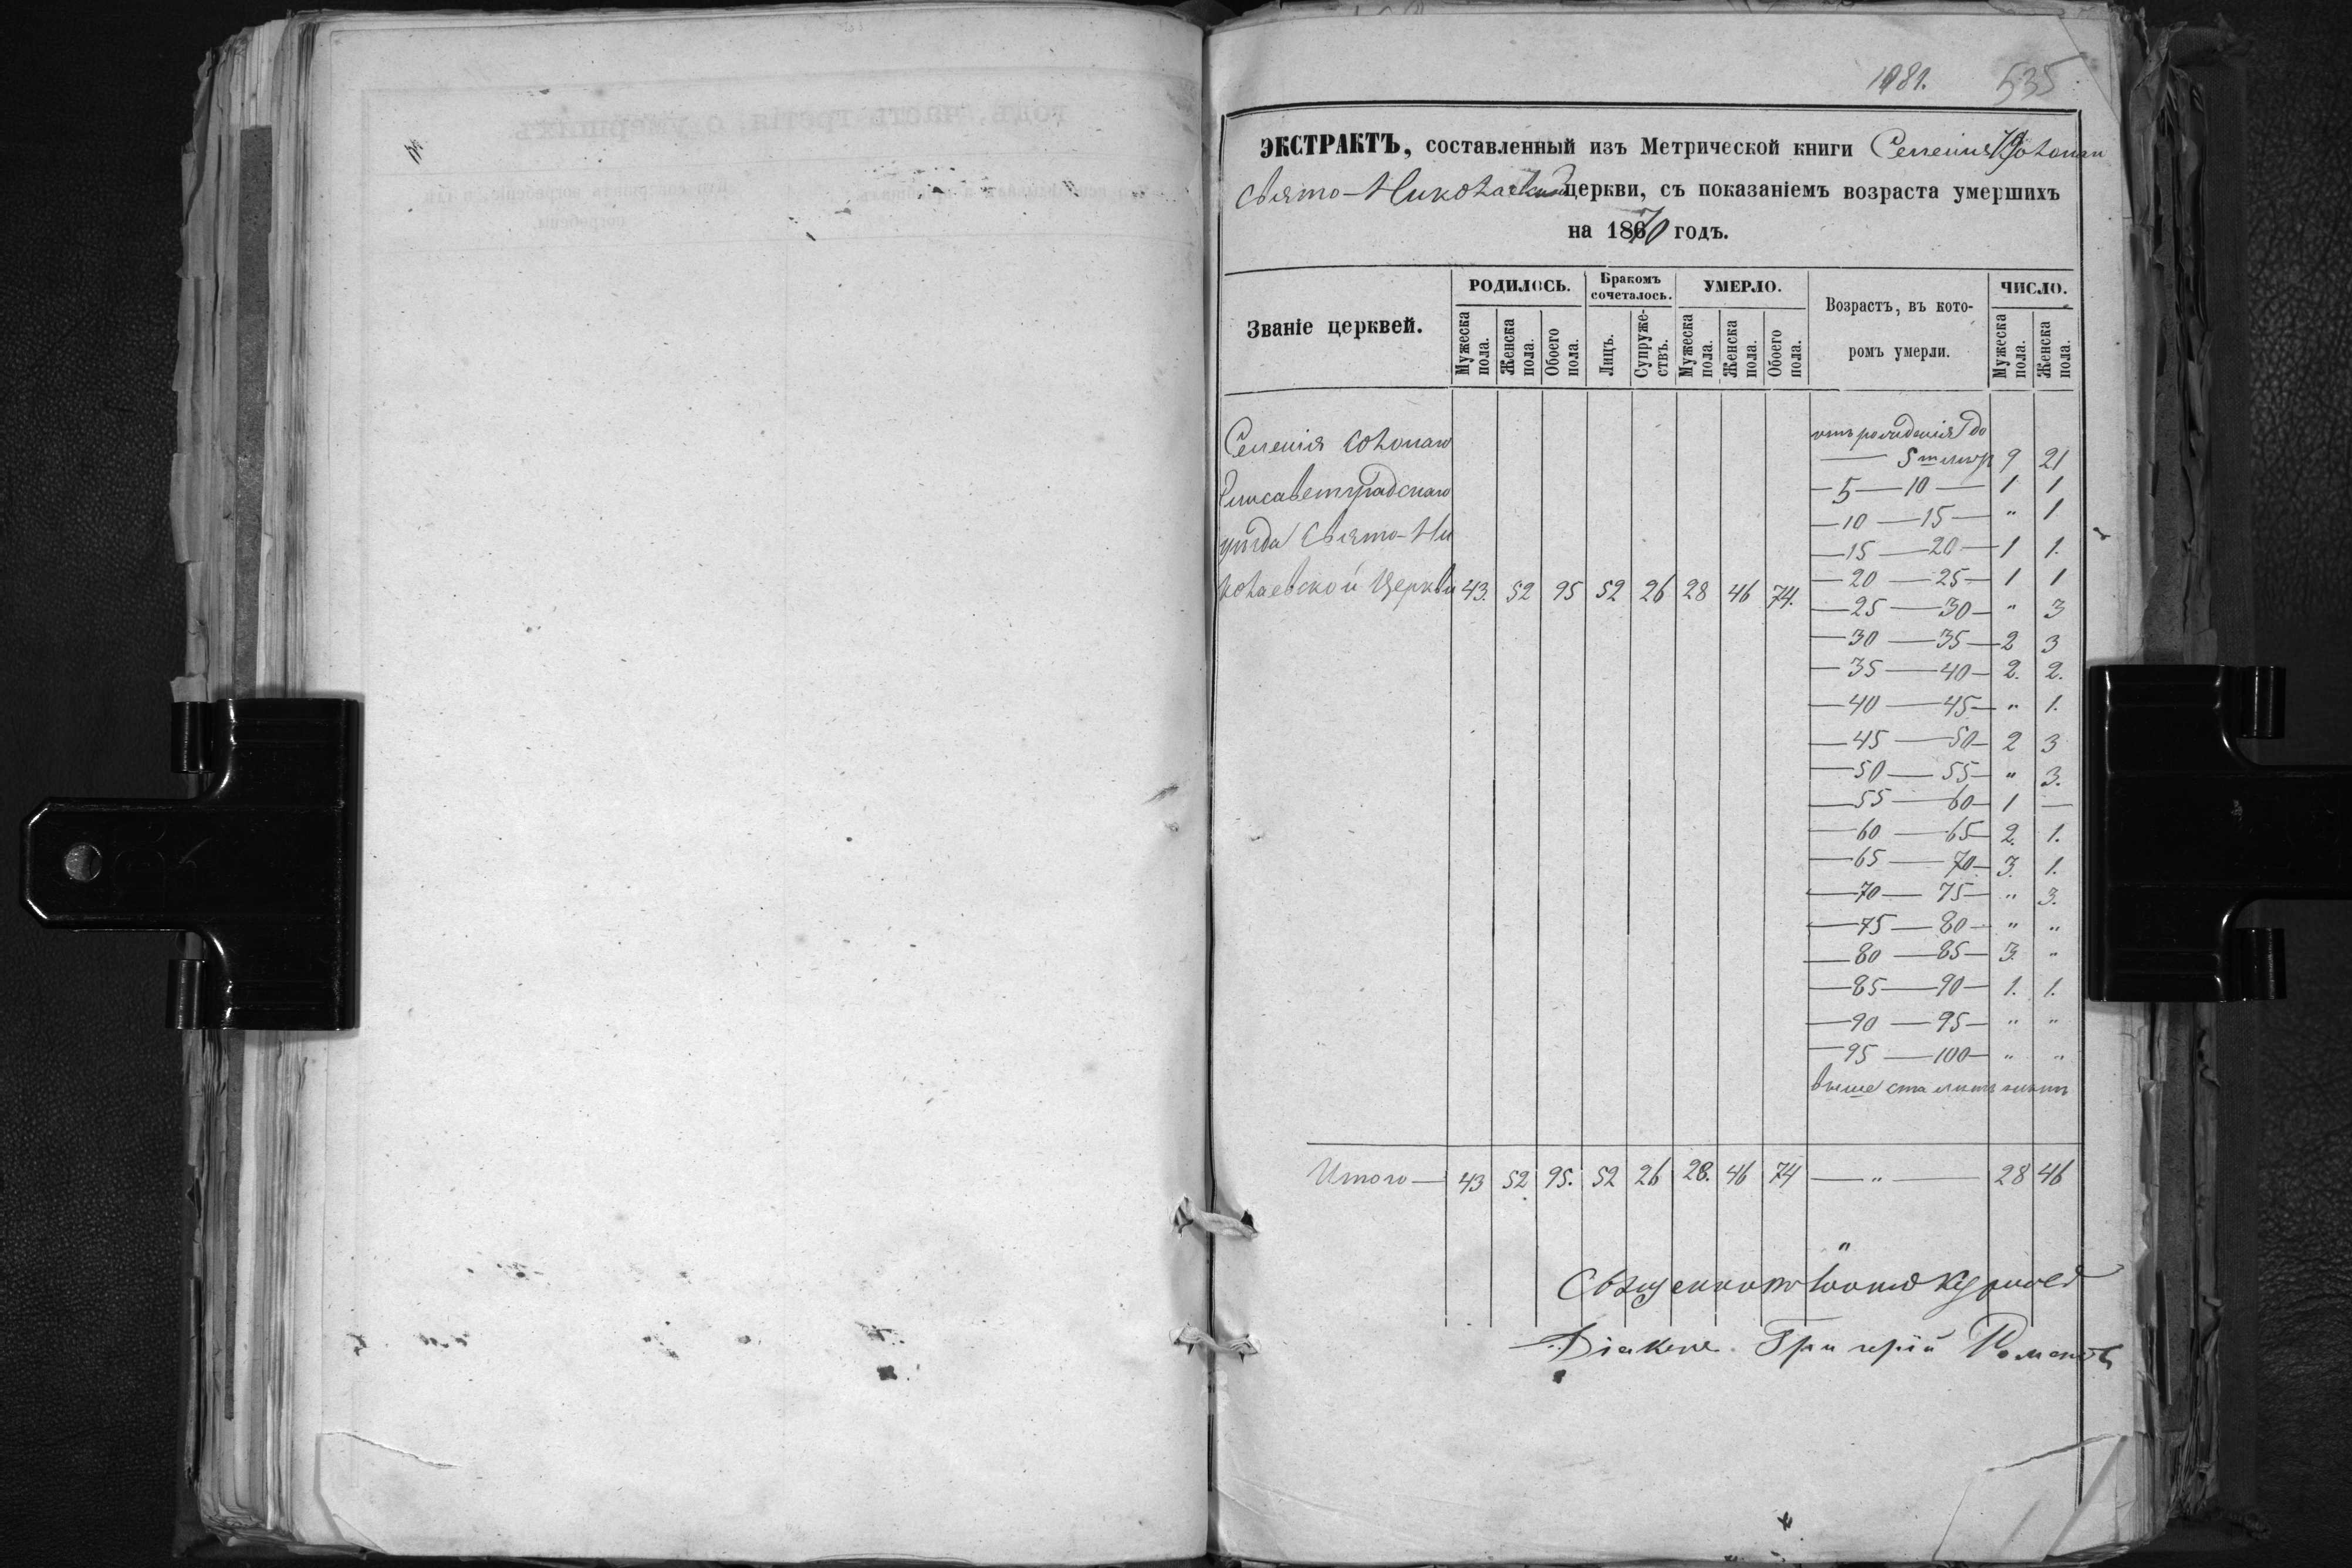 1981. 535
ЭКСТРАКТЪ, составленный изъ Метрической книги Селенія
Свято-Николаевской церкви, съ показаніемъ возраста умершихъ
на 1870 годъ.
Званіе церквей.
РОДИЛОСЬ.
Мужеска пола.
Женска пола.
Обоего пола.
Бракомъ сочеталось.
Лицъ.
Супружествъ.
УМЕРЛО.
Мужеска пола.
Женска пола.
Обоего пола.
Возрастъ, въ которомъ умерли.
ЧИСЛО.
Мужеска пола.
Женска пола.
Селенія
Елисаветградскаго
уѣзда Свято-Ни
колаевской Церкви 43. 52 95 52 26 28 46 74.
отъ рожденія до
— 5 9 21
—5—10— 1 1
—10—15— " 1
—15—20— 1 1.
—20—25— 1 1
—25—30— " 3
—30—35— 2 3
—35—40— 2. 2.
—40—45— " 1.
—45—50— 2 3
—50—55— " 3.
—55—60— 1 —
—60—65— 2. 1.
—65—70— 3. 1.
—70—75— " 3.
—75—80— " "
—80—85— 3. "
—85—90— 1. 1.
—90—95— " "
—95—100— " "
выше ста лѣтъ
Итого— 43 52 95. 52 26 28. 46 74 —"— 28 46
Діаконъ Григорій Романовъ